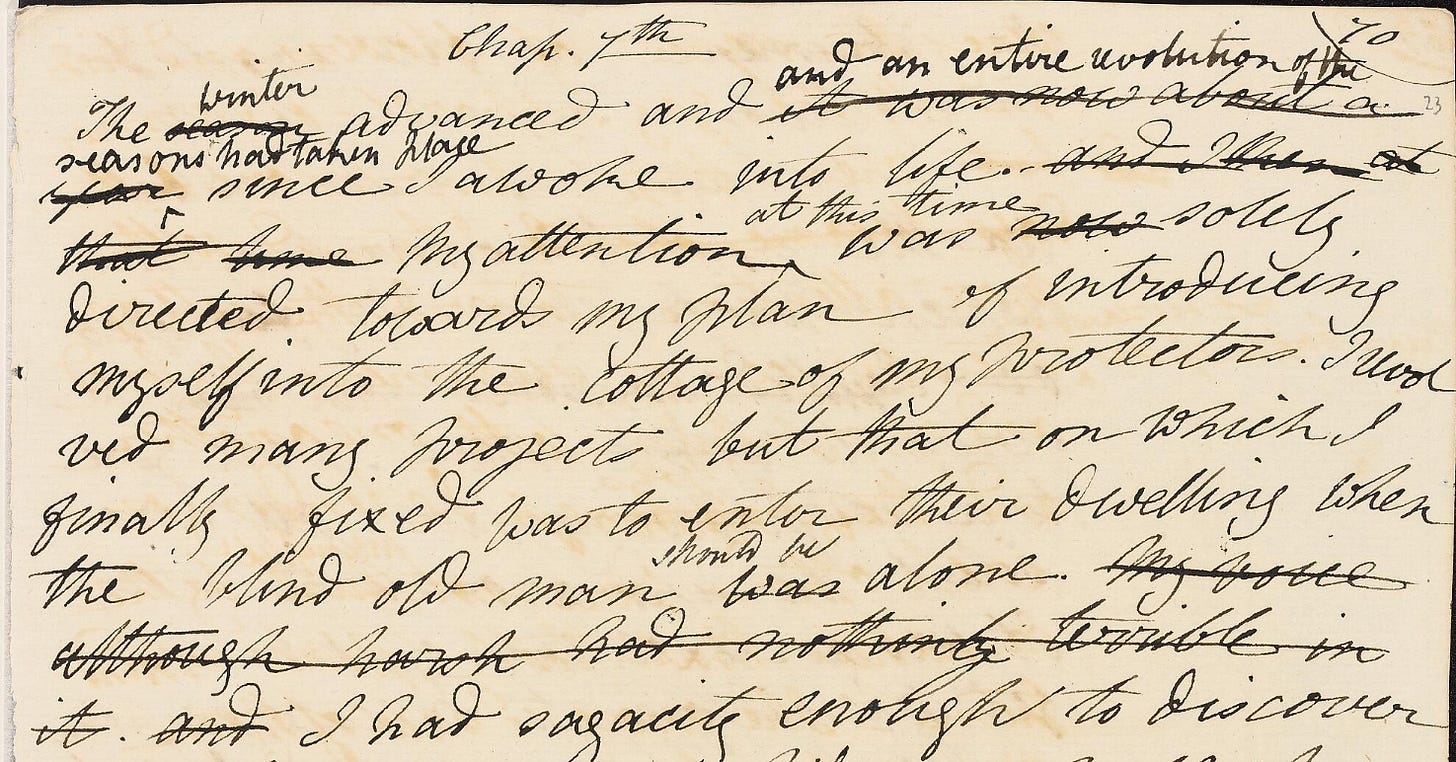 Chap. 7th
70
23
and an entire revolution of the
winter
The season advanced and it was now about a
seasons had taken place
year since I awoke into life. and I then at
at this time
that time My attention was now solely
directed towards my plan of introducing
myself into the cottage of my protectors. I revol
ved many projects but that on which I
finally fixed was to enter their dwelling when
should be
the blind old man was alone. My voice
although harsh had nothing terrible in
it. and I had sagacity enough to discover